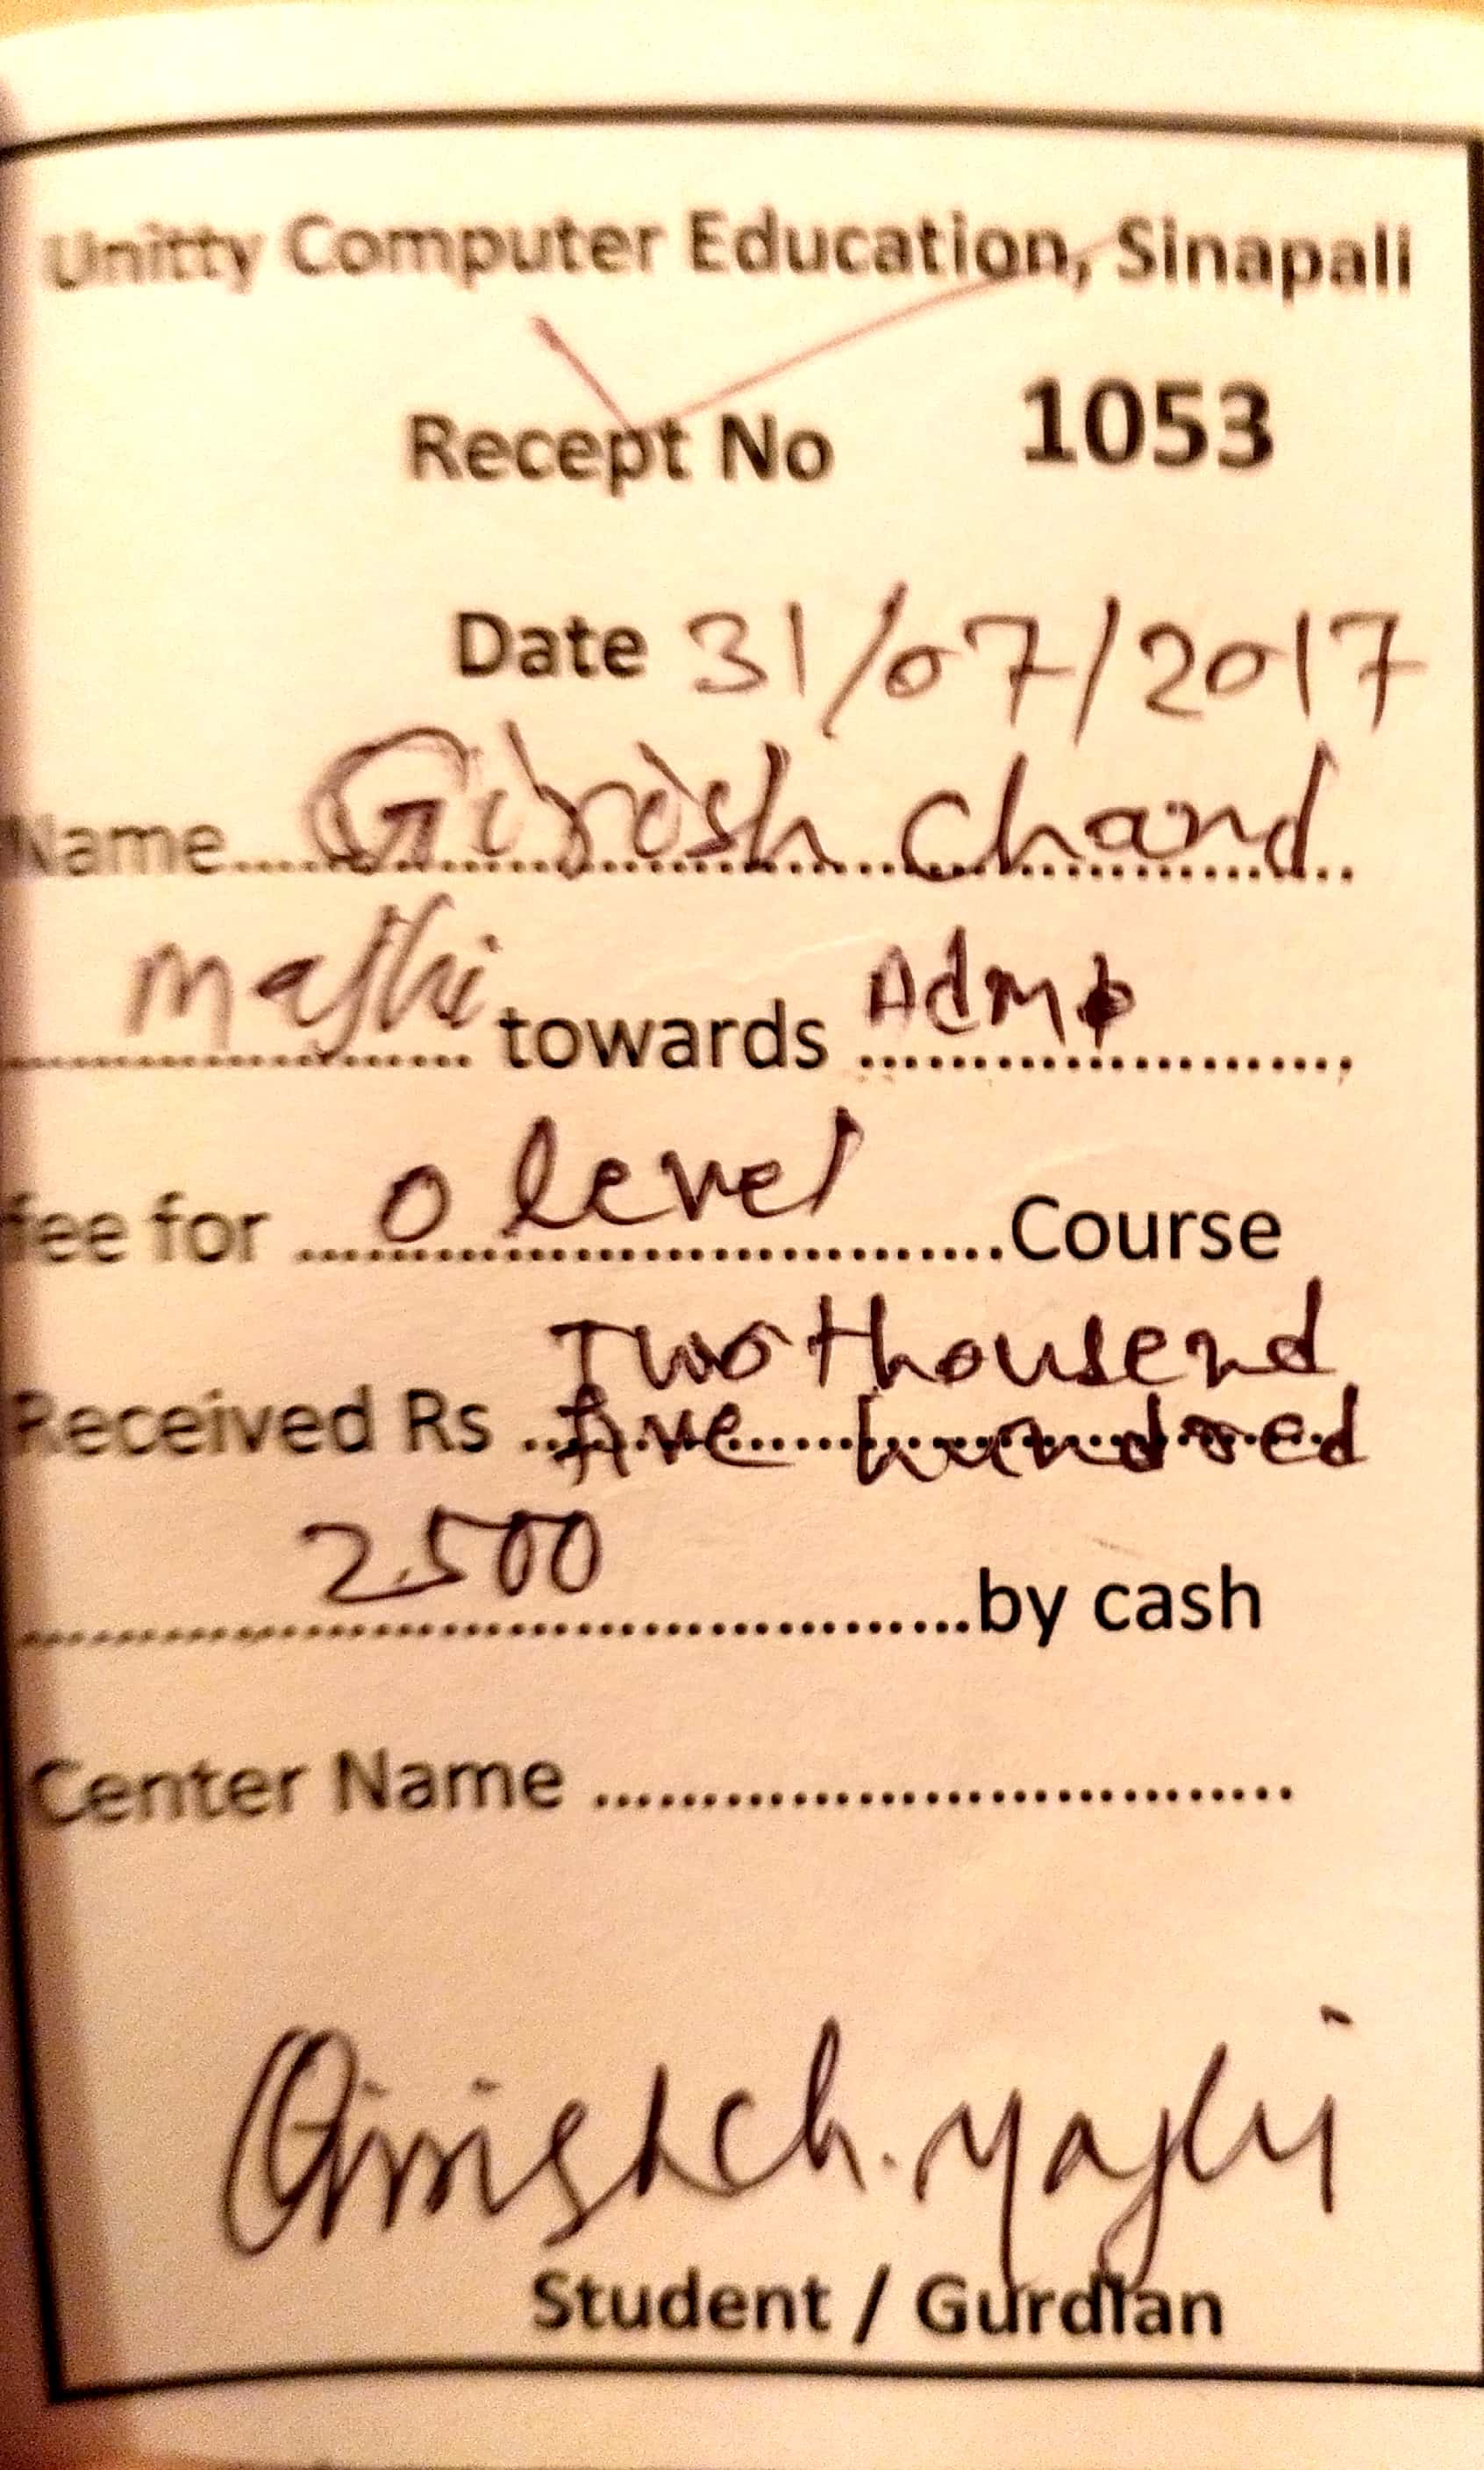 Unitty Computer Education, Sinapali
Recept No 1053
Date 31/07/2017
Name Girish Chand
Majhi towards Adm
fee for O level Course
Two thousend
Received Rs five hundred
2500 by cash
Center Name
Girish ch. Majhi
Student / Gurdian